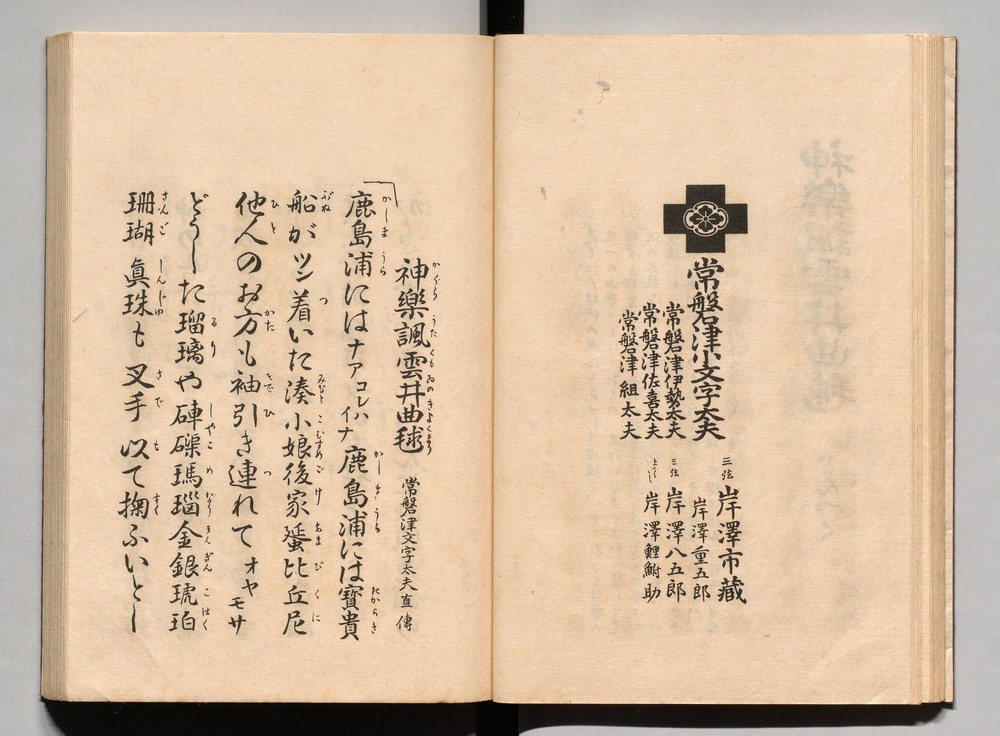 常磐津小文字太夫
常磐津伊勢太夫
常磐津佐喜太夫
常磐津組太夫
三弦 岸澤市藏
岸澤重五郎
三弦 岸澤八五郎
上てうし 岸澤鯉鮒助
神樂諷雲井曲毬 常磐津文字太夫直傳
鹿島浦にはナアコレハイナ鹿島浦には寳貴
船がツン着いた湊小娘後家蜑比丘尼
他人のお方も袖引き連れてオヤモサ
どうした瑠璃や硨磲瑪瑙金銀琥珀
珊瑚眞珠も叉手以て掬ふいとし